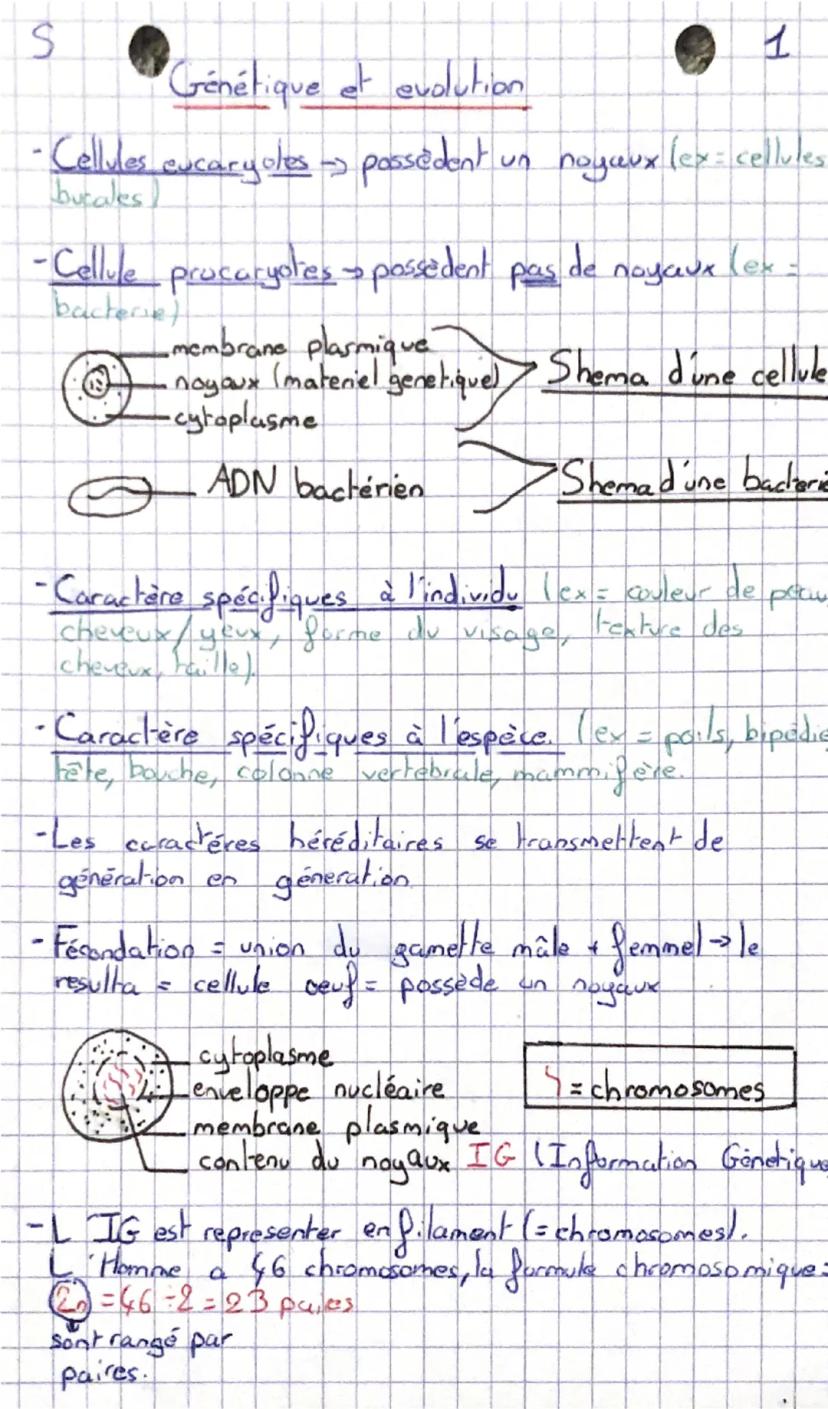 S 1
Génétique et evolution
- Cellules eucaryotes → possèdent un noyaux (ex = cellules
bucales)
- Cellule procaryotes → possèdent pas de noyaux (ex =
bacterie)
membrane plasmique
noyaux (materiel genetique)
cytoplasme
Shema d'une cellule
ADN bactérien
Shema d'une bacterie
- Caractère spécifiques à l'individu (ex = couleur de peau
cheveux/yeux, forme du visage, texture des
cheveux, taille).
- Caractère spécifiques à l'espèce. (ex = poils, bipédie
tête, bouche, colonne vertebrale, mammifère.
- Les caractéres héréditaires se transmettent de
génération en géneration
- Fécondation = union du gamette mâle + femmel → le
resulta = cellule oeuf = possède un noyaux
cytoplasme
enveloppe nucléaire
membrane plasmique
contenu du noyaux IG (Information Génetique
= chromosomes
- L'IG est representer en filament (= chromosomes).
L'Homme a 46 chromosomes, la formule chromosomique =
2n = 46 ÷ 2 = 23 paires
sont rangé par
paires.